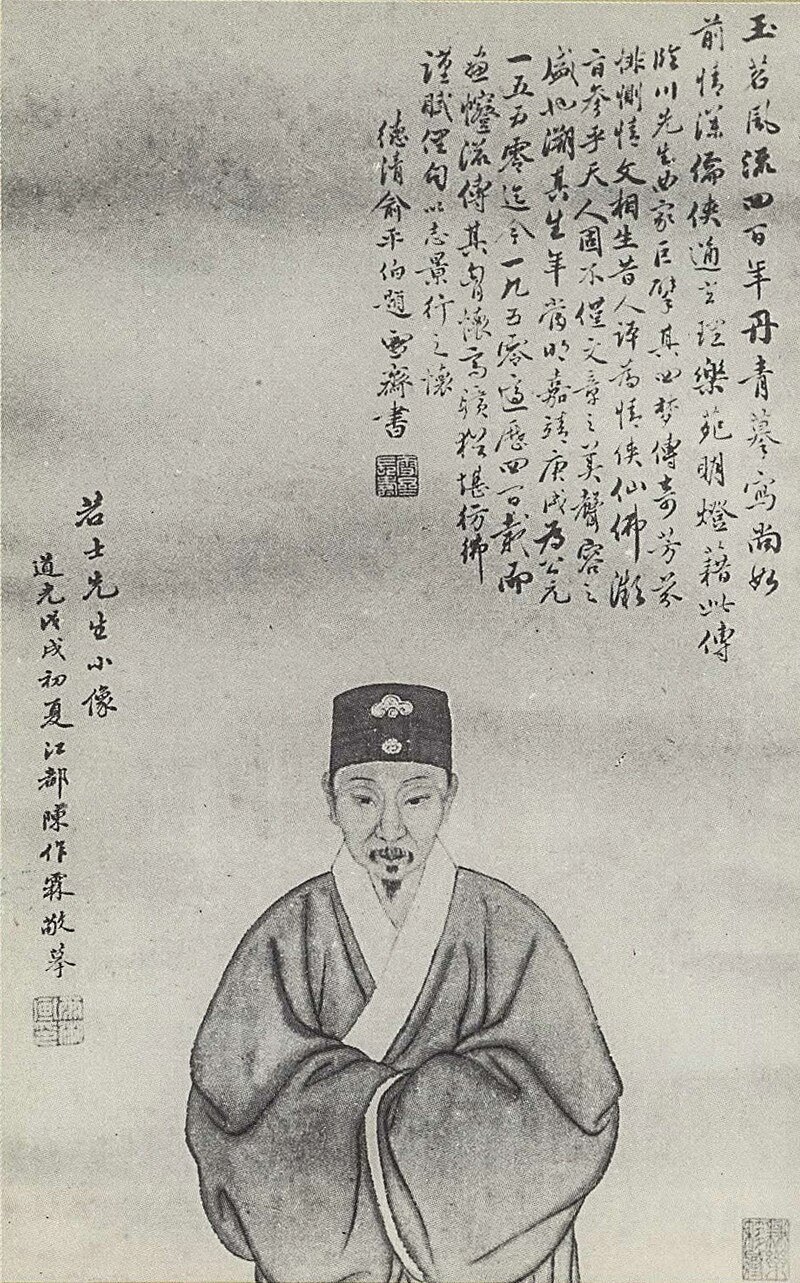 玉茗風流四百年丹青摹寫尚如
前情深儒俠通玄理樂苑明燈藉此傳
臨川先生曲家巨擘其四夢傳奇芳芬
悱惻情文相生昔人評為情俠仙佛
參乎天人固不僅文章之美聲容之
盛也溯其生年當明嘉靖庚戌為公元
一五五零迄今一九五零適歷四百載而
傳其胷懷高曠猶堪彷彿
謹賦俚句以志景行之懷
德清俞平伯題雪齋書
若士先生小像
道光戊戌初夏江都陳作霖敬摹